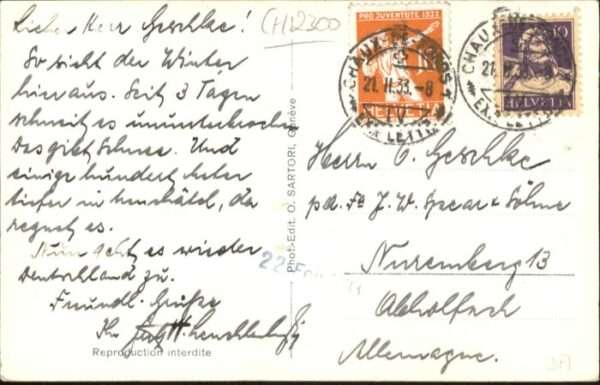 Lieber Herr Geschke!
So sieht der Winter
hier aus. Seit 3 Tagen
schneit es ununterbrochen
Das giebt Schnee. Und
einige hundert meter
tiefer in Neuchâtel, da
regnet es.
Nun geht es wieder
Deutschland zu.
Freundl. Grüße
Ihr
Reproduction interdite
CH12300
Phot-Edit. O. SARTORI, Genève
PRO JUVENTUTE 1932
HELVETIA
10
HELVETIA
CHAUX-DE-FONDS
21.II.33.-8
EXP. LETTR.
CHAUX-DE-FONDS
21.II.33
EXP. LETTR.
Herrn C. Geschke
pd. Fa J. W. Spear & Söhne
Nuremberg 13
Abholfach
Allemagne.